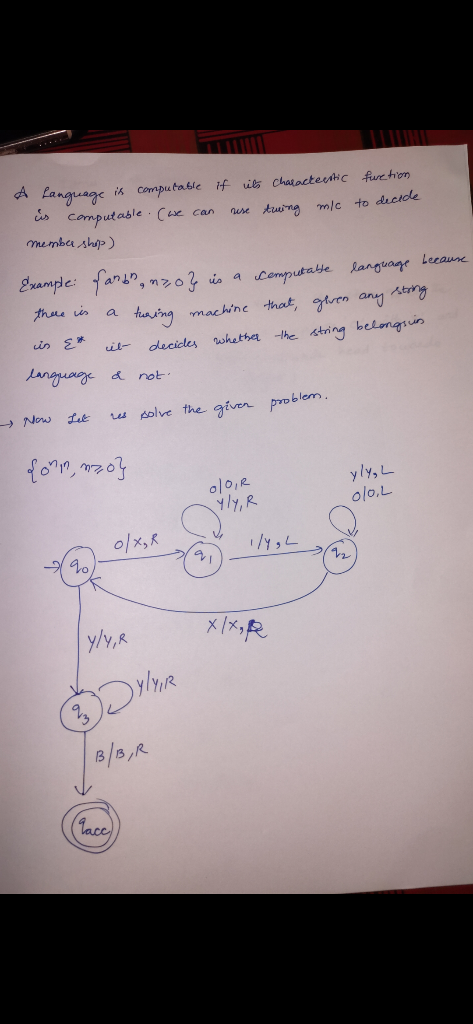 A Language is computable if its characteristic function
is computable. (we can use turing m/c to decide
membership)
Example: {aⁿbⁿ, n≥0} is a computable language because
there is a turing machine that, given any string
in Σ* it decides whether the string belongs in
language & not.
→ Now Let us solve the given problem.
{0ⁿ1ⁿ, n≥0}
0/0,R
Y/Y,R
Y/Y,L
0/0,L
q0
0/X,R
q1
1/Y,L
q2
X/X,R
Y/Y,R
q3
Y/Y,R
B/B,R
qacc